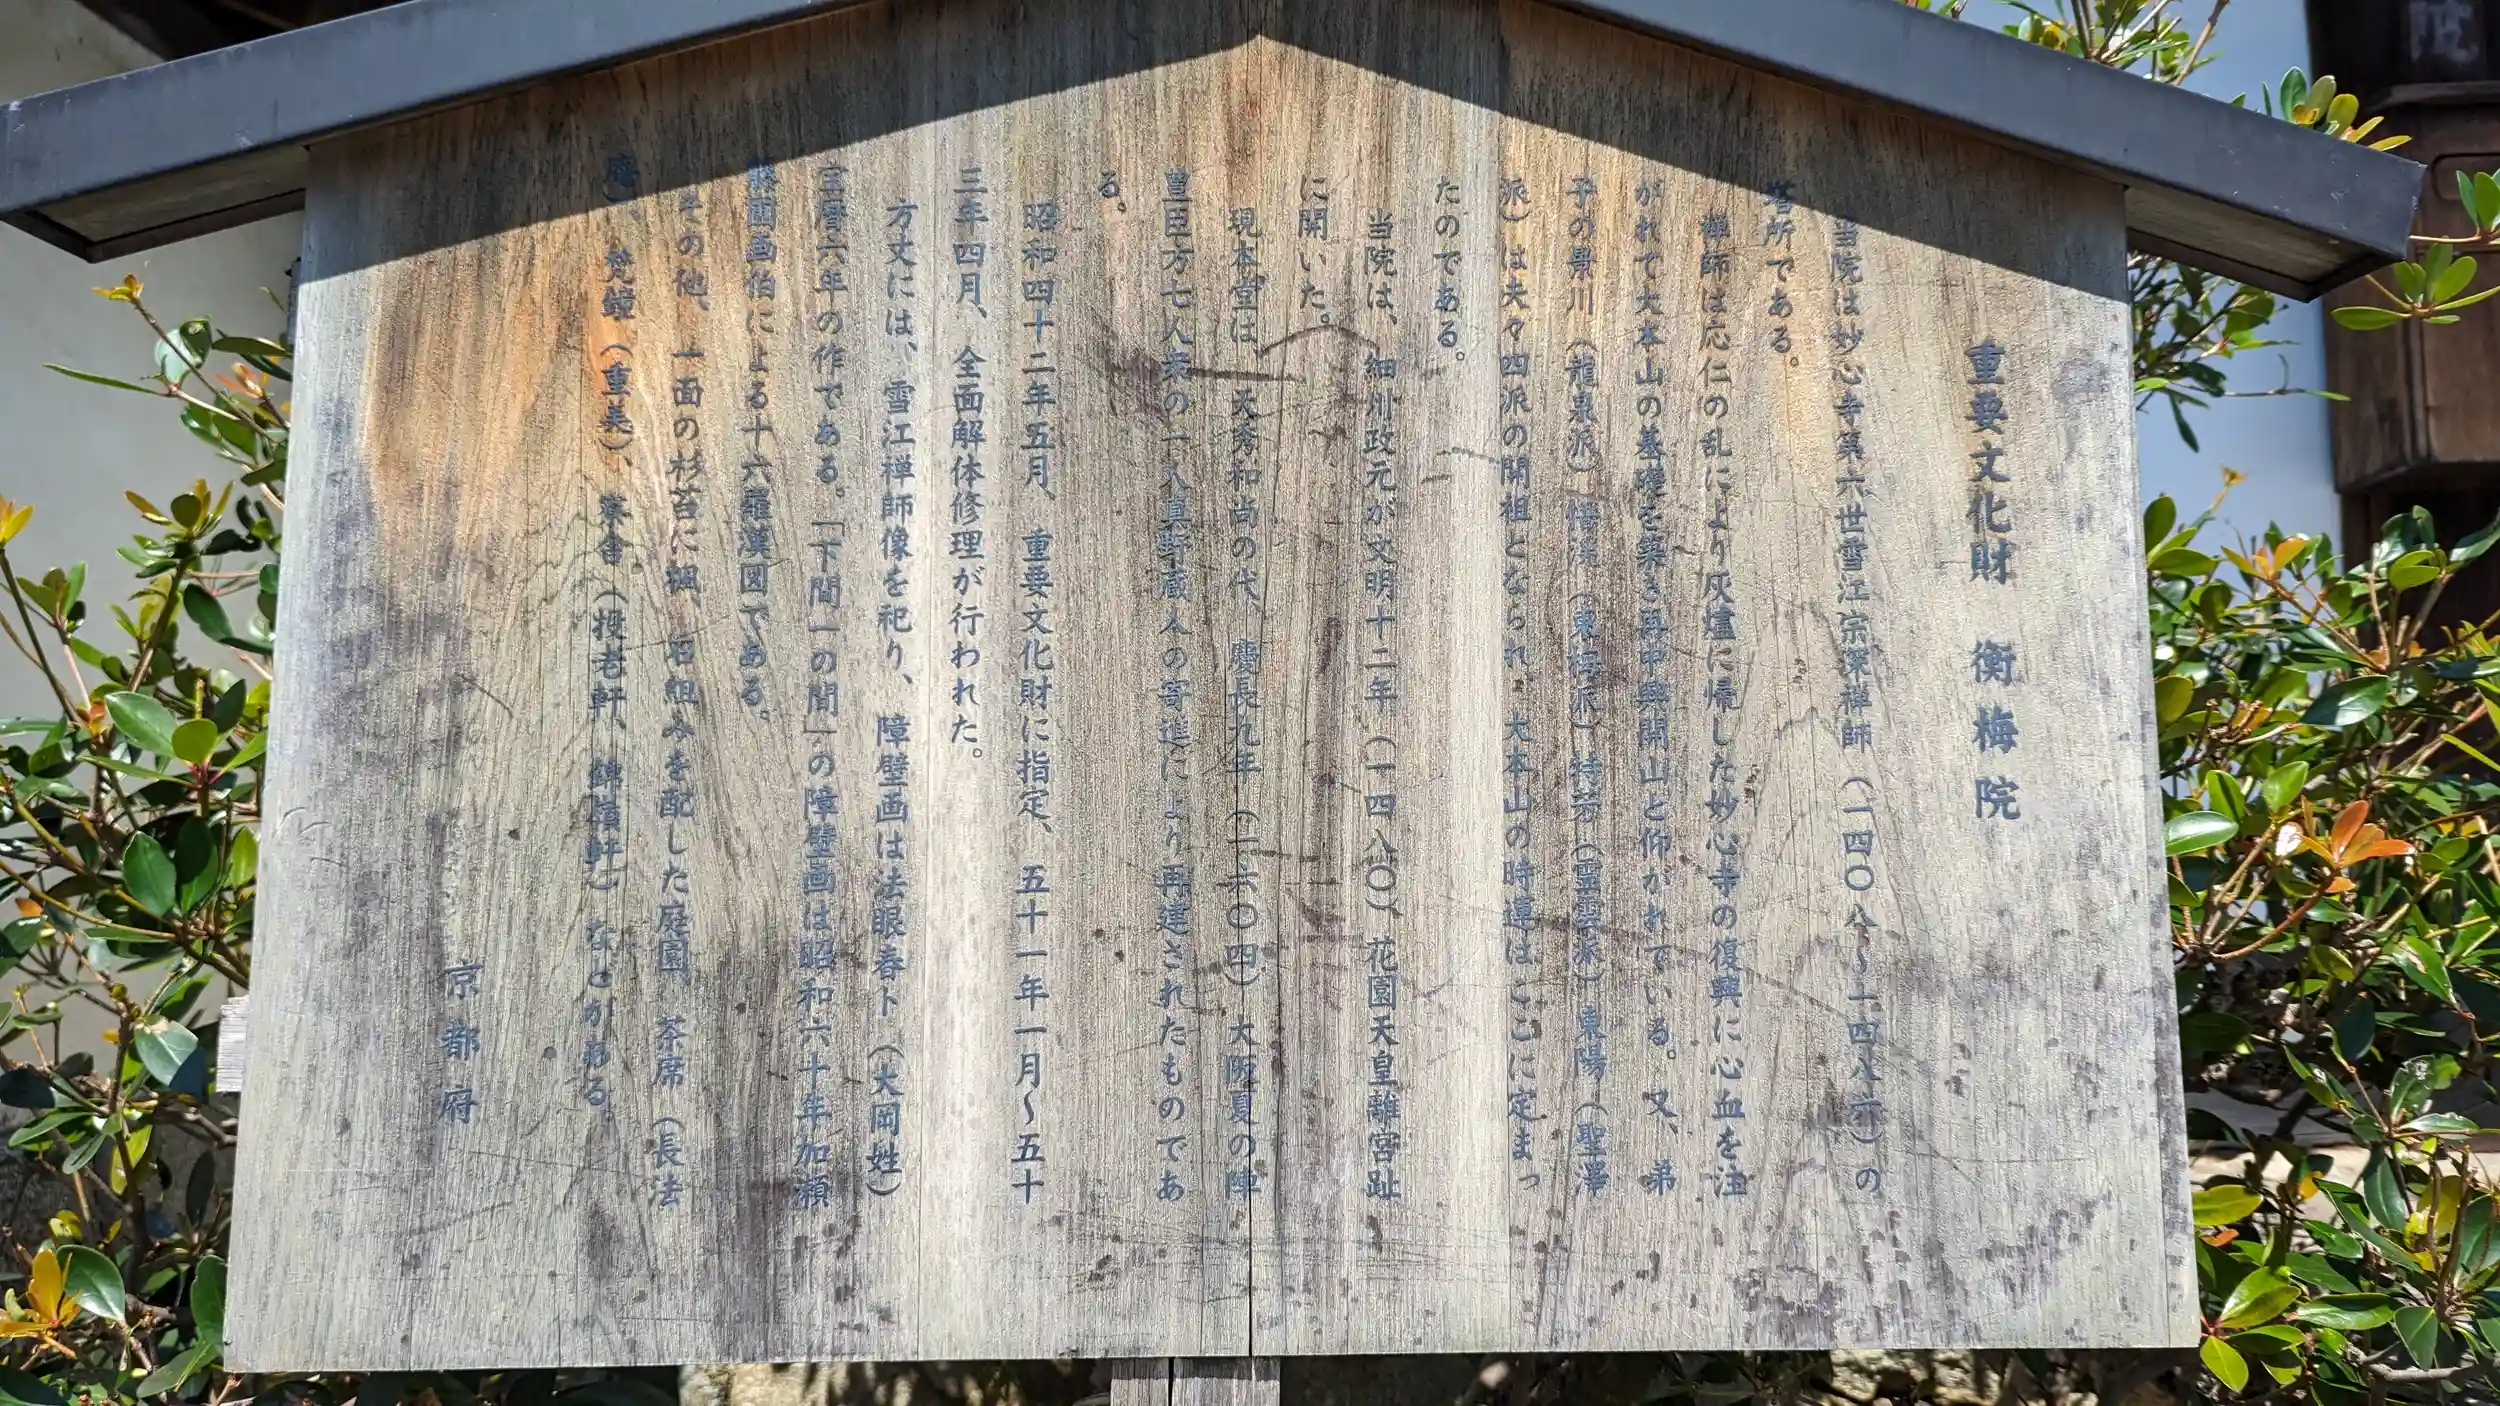 重要文化財　衡梅院
当院は妙心寺第六世雪江宗深禅師（一四〇八〜一四八六）の
塔所である。
禅師は応仁の乱により灰燼に帰した妙心寺の復興に心血を注
がれて大本山の基礎を築き再中興開山と仰がれている。又、弟
子の景川（龍泉派）悟渓（東海派）特芳（霊雲派）東陽（聖澤
派）は夫々四派の開祖となられ、大本山の時運はここに定まっ
たのである。
当院は、細川政元が文明十二年（一四八〇）、花園天皇離宮趾
に開いた。
現本堂は、天秀和尚の代、慶長九年（一六〇四）大阪夏の陣
豊臣方七人衆の一人真野蔵人の寄進により再建されたものであ
る。
昭和四十二年五月、重要文化財に指定、五十一年一月〜五十
三年四月、全面解体修理が行われた。
方丈には、雪江禅師像を祀り、障壁画は法眼春卜（大岡姓）
宝暦六年の作である。「下間一の間」の障壁画は昭和六十年加瀬
藤圃画伯による十六羅漢図である。
その他、一面の杉苔に楓、石組みを配した庭園、茶席（長法
庵）、梵鐘（重美）、寮舎（投老軒、錦嶺軒）などがある。
京都府